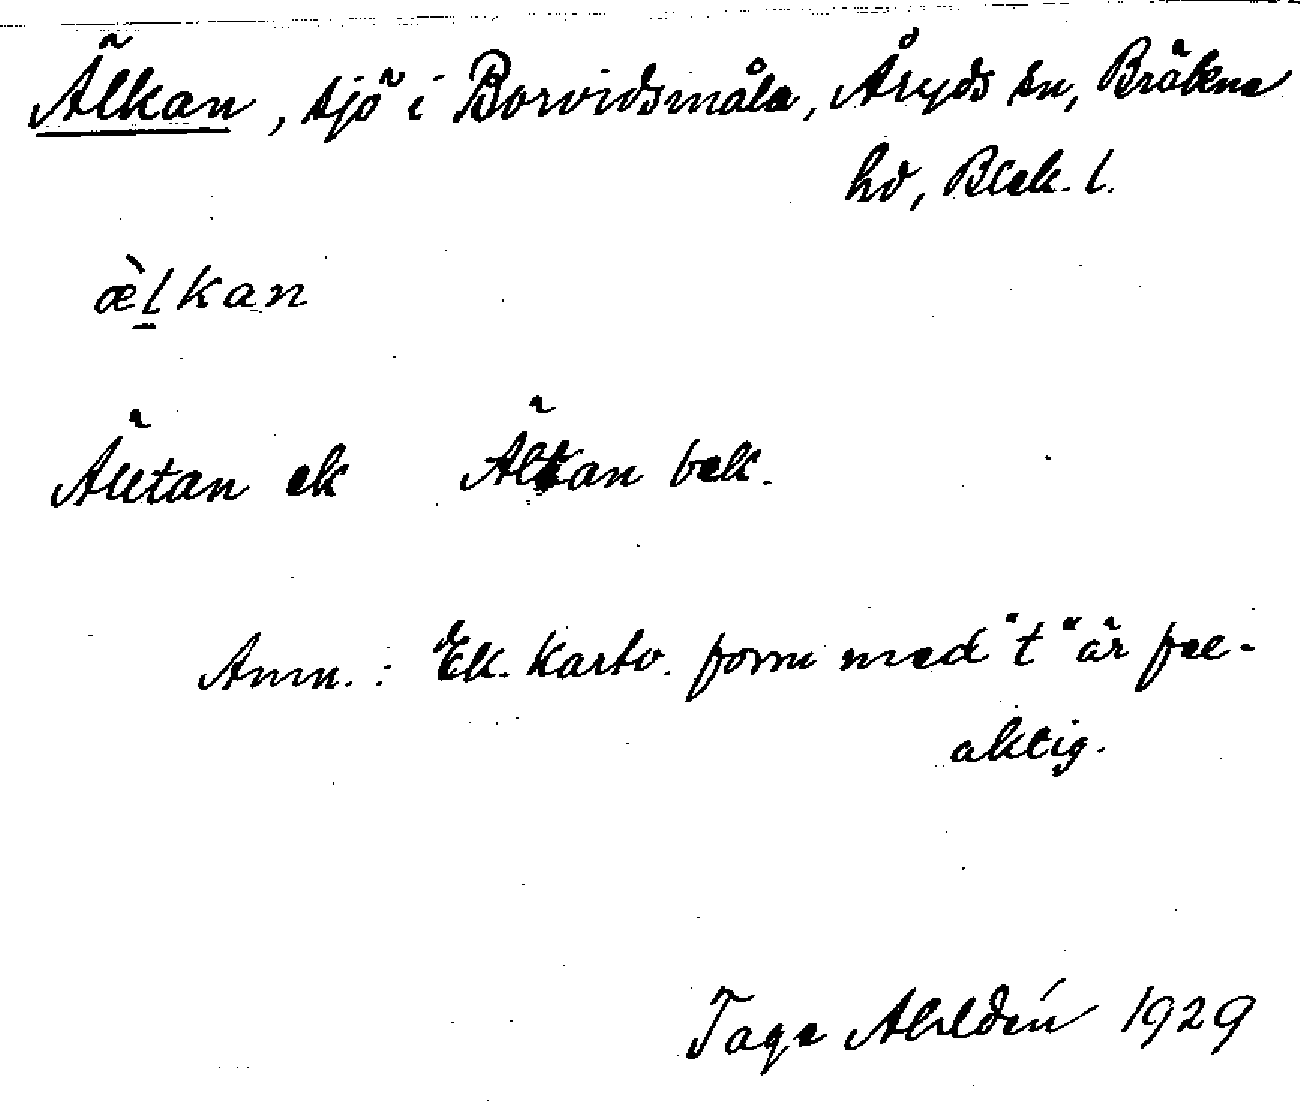 Älkan, sjö i Borvidsmåla, Åryds sn, Bräkne
hd, Blek. l.
æ̀l̠kan
Ältan ek Älkan bek.
Anm.: Ek. karto. form med "t" är fel-
aktig.
Tage Ahldén 1929